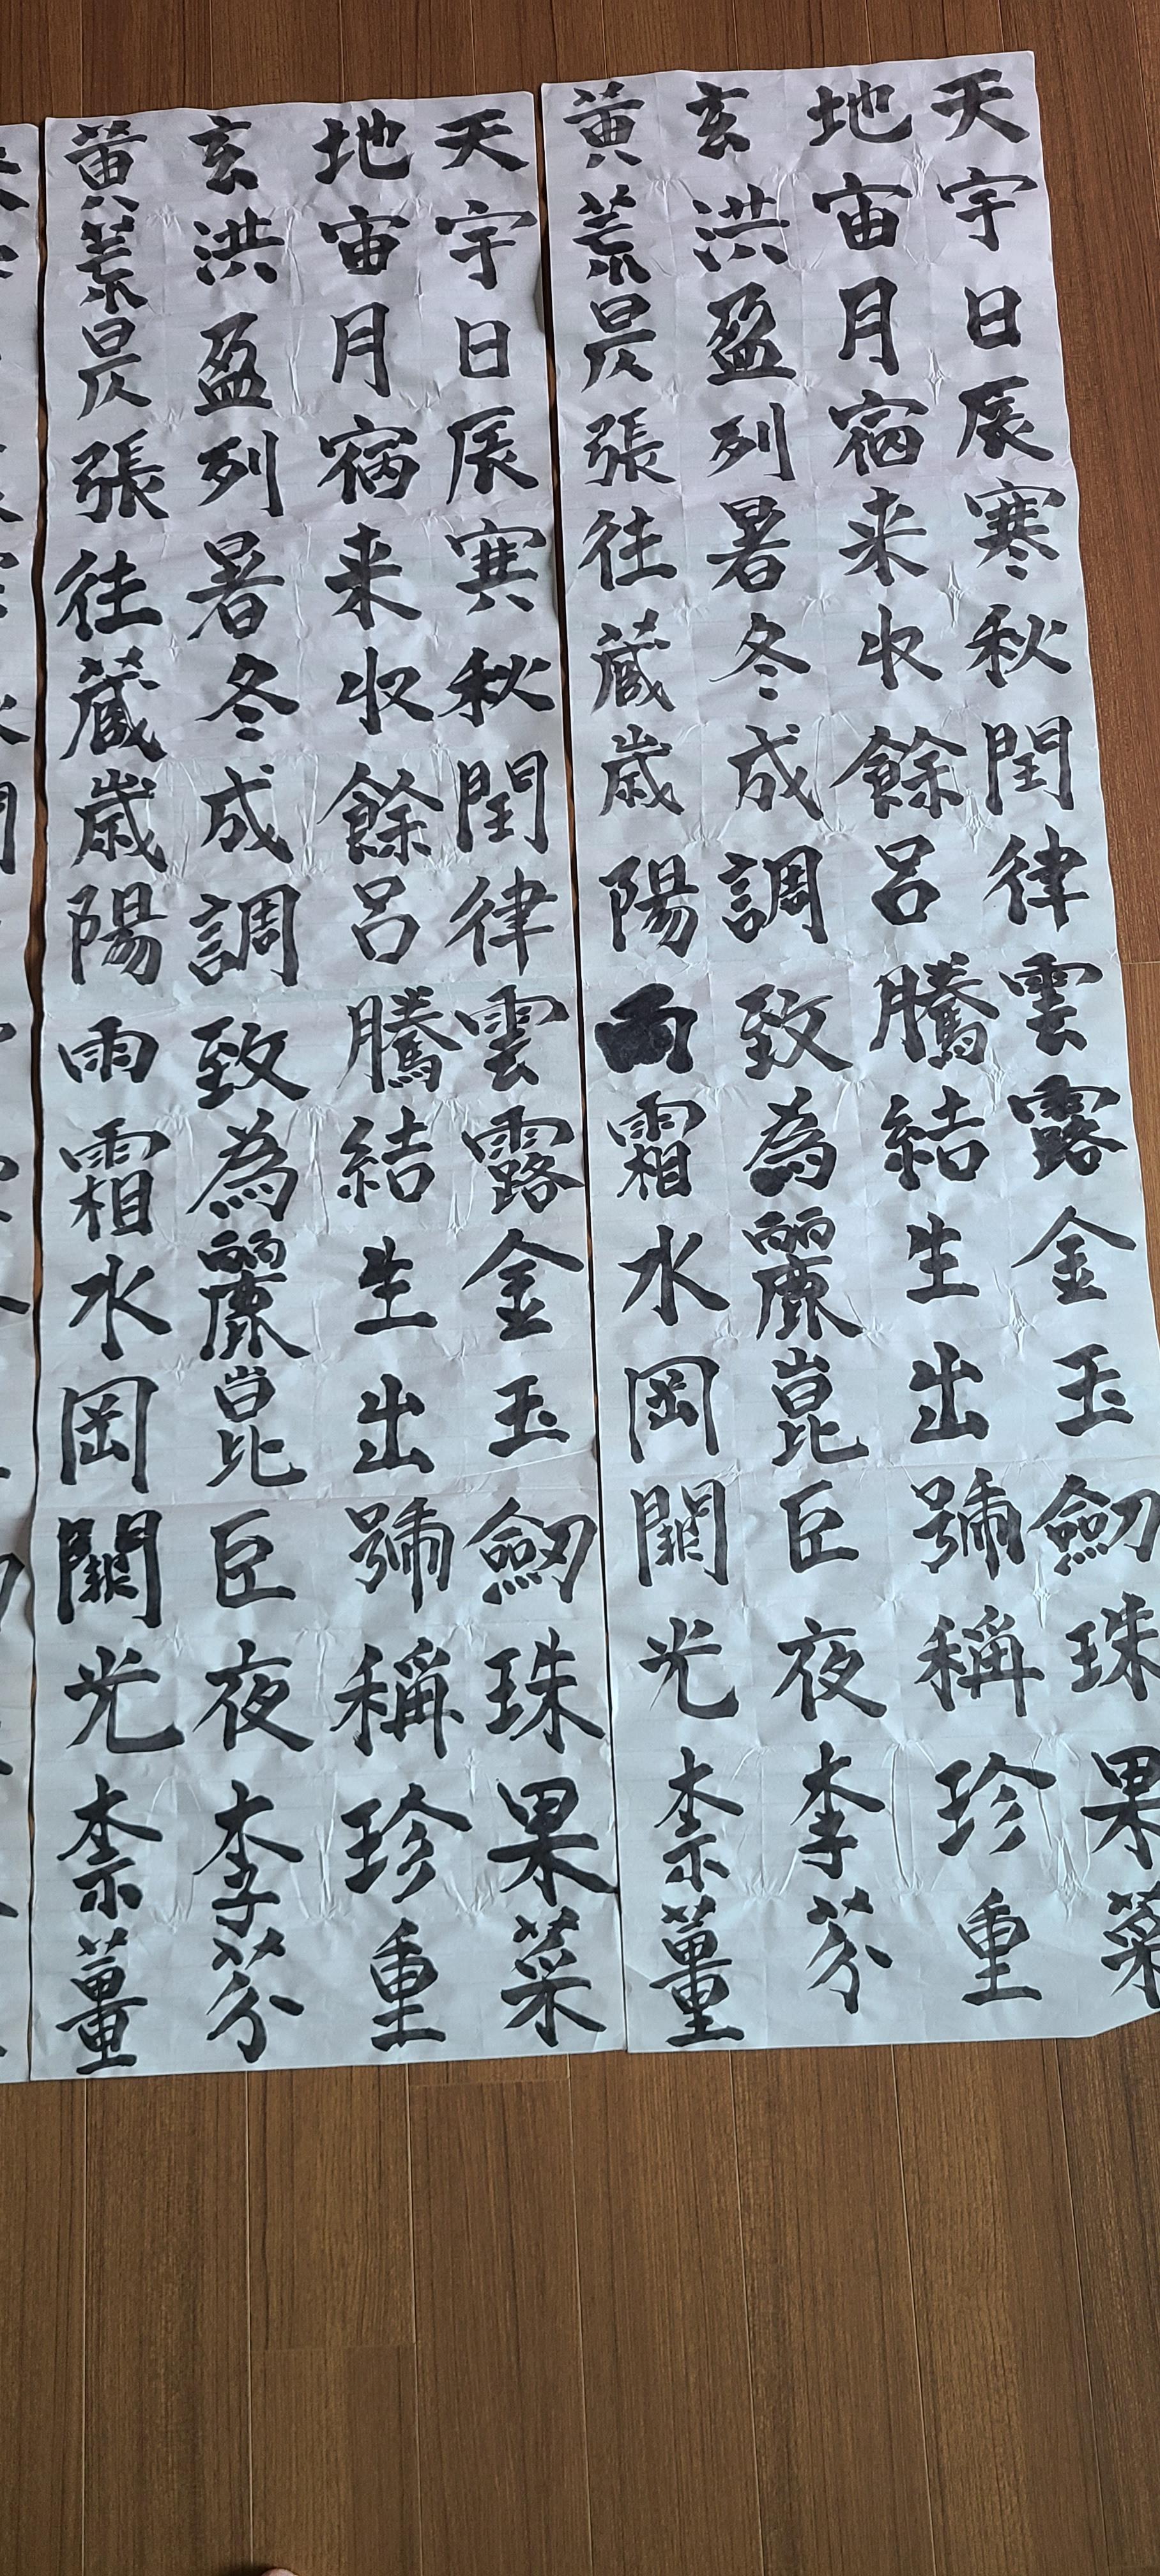 天地玄黄
宇宙洪荒
日月盈昃
辰宿列張
寒来暑往
秋収冬蔵
閏餘成歳
律呂調陽
雲騰致雨
露結為霜
金生麗水
玉出崑岡
劒號巨闕
珠稱夜光
果珍李柰
菜重芥薑
天地玄黄
宇宙洪荒
日月盈昃
辰宿列張
寒来暑往
秋収冬蔵
閏餘成歳
律呂調陽
雲騰致雨
露結為霜
金生麗水
玉出崑岡
劒號巨闕
珠稱夜光
果珍李柰
菜重芥薑